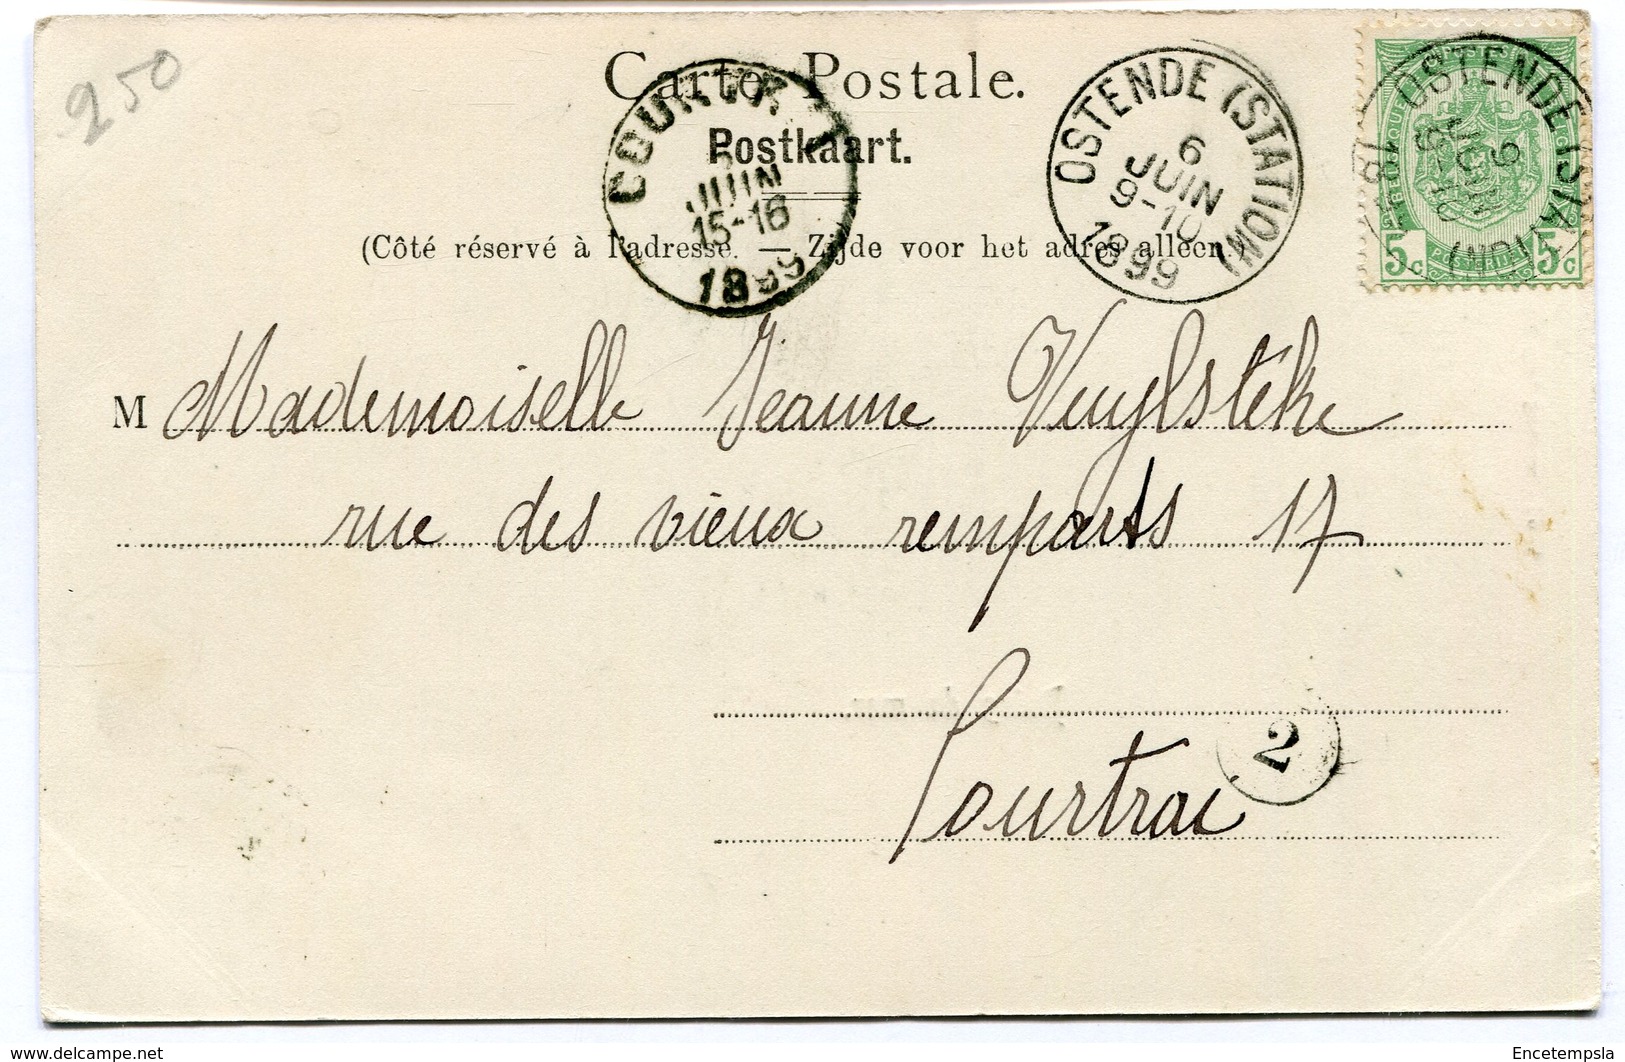 250
Carte Postale.
Postkaart.
(Côté réservé à l'adresse. — Zijde voor het adres alleen.)
COURTRAI
JUIN
15-16
1899
OSTENDE (STATION)
6
JUIN
9-10
1899
OSTENDE (STATION)
BELGIQUE
POSTERIJEN
5c 5c
M Mademoiselle Jeanne Vuylsteke
rue des vieux remparts 17
Courtrai
2
www.delcampe.net
Encetempsla